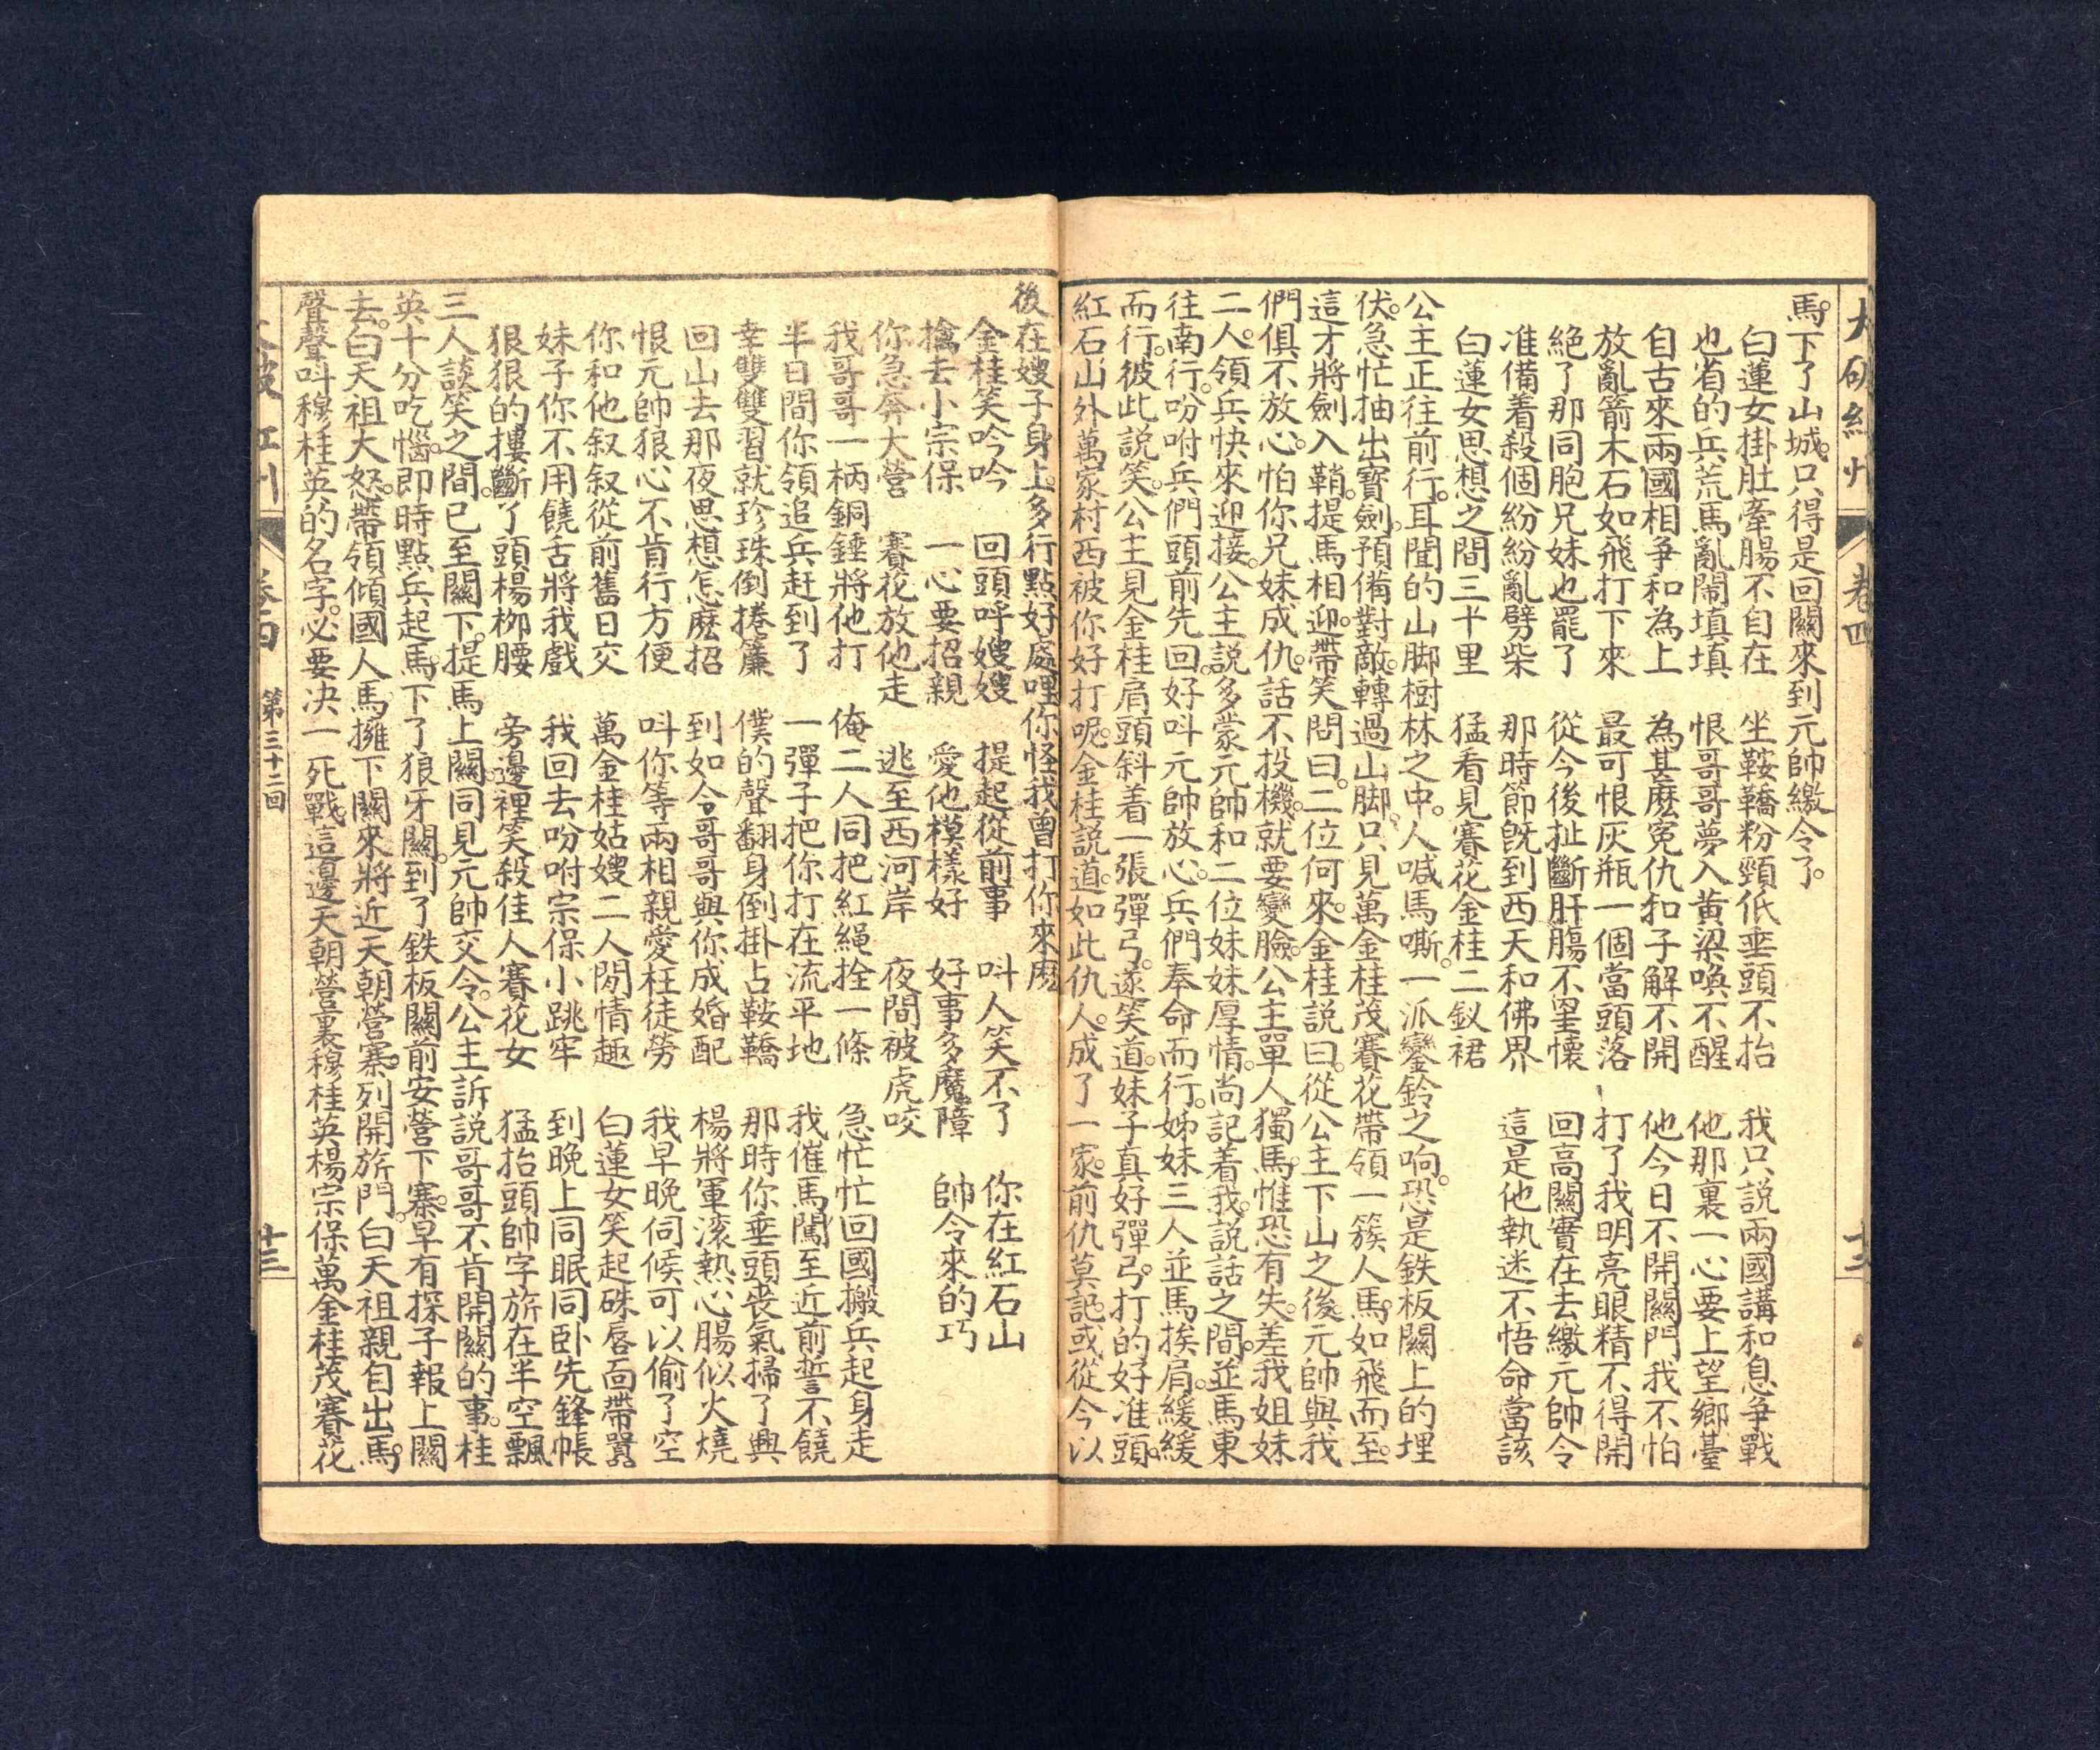 大破紅州 卷四 十三
馬。下了山城。只得是回關來到元帥繳令了。
白蓮女掛肚牽腸不自在 坐鞍鞽粉頸低垂頭不抬 我只説兩國講和息爭戰
也省的兵荒馬亂鬧填填 恨哥哥夢入黄梁喚不醒 他那裏一心要上望鄉臺
自古來兩國相爭和為上 為甚麽冤仇扣子解不開 他今日不開關門我不怕
放亂箭木石如飛打下來 最可恨灰瓶一個當頭落 打了我明亮眼精不得開
絕了那同胞兄妹也罷了 從今後扯斷肝腸不罣懷 回高關實在去繳元帥令
准備着殺個紛紛亂劈柴 那時節旣到西天和佛界 這是他執迷不悟命當該
白蓮女思想之間三十里 猛看見賽花金桂二釵裙
公主正往前行。耳聞的山脚樹林之中。人喊馬嘶。一派鑾鈴之响。恐是鉄板關上的埋
伏。急忙抽出寶劍。預備對敵。轉過山脚。只見萬金桂茂賽花帶領一簇人馬。如飛而至。
這才將劍入鞘。提馬相迎。帶笑問曰。二位何來。金桂説曰。從公主下山之後。元帥與我
們俱不放心。怕你兄妹成仇。話不投機。就要變臉。公主單人獨馬。惟恐有失。差我姐妹
二人。領兵快來迎接。公主説。多蒙元帥和二位妹妹厚情。尚記着我。説話之間。並馬東
往南行。吩咐兵們頭前先回。好呌元帥放心。兵們奉命而行。姊妹三人並馬挨肩。緩緩
而行。彼此説笑。公主見金桂肩頭斜着一張彈弓。遂笑道。妹子真好彈弓。打的好准頭。
紅石山外萬家村西被你好打呢。金桂説道。如此仇人。成了一家。前仇莫記。或從今以
後在嫂子身上多行點好處哩你怪我曾打你來麽
金桂笑吟吟 回頭呼嫂嫂 提起從前事 呌人笑不了 你在紅石山
擒去小宗保 一心要招親 愛他模樣好 好事多魔障 帥令來的巧
你急奔大營 賽花放他走 逃至西河岸 夜間被虎咬
我哥哥一柄銅錘將他打 俺二人同把紅繩拴一條 急忙忙回國搬兵起身走
半日間你領追兵赶到了 一彈子把你打在流平地 我催馬闖至近前誓不饒
幸雙雙習就珍珠倒捲簾 僕的聲翻身倒掛占鞍鞽 那時你垂頭喪氣掃了興
回山去那夜思想怎麽招 到如今哥哥與你成婚配 楊將軍滚熱心腸似火燒
恨元帥狠心不肯行方便 呌你等兩相親愛枉徒勞 我早晚伺候可以偷了空
你和他叙叙從前舊日交 萬金桂姑嫂二人閒情趣 白蓮女笑起硃唇面帶嚣
妹子你不用饒舌將我戲 我回去吩咐宗保小跳牢 到晚上同眠同卧先鋒帳
狠狠的摟斷了頭楊柳腰 旁邊裡笑殺佳人賽花女 猛抬頭帥字旂在半空飄
三人談笑之間。已至關下。提馬上關。同見元帥交令。公主訴説哥哥不肯開關的事。桂
英十分吃惱。即時點兵起馬。下了狼牙關。到了鉄板關前安營下寨。早有探子報上關
去。白天祖大怒。帶領傾國人馬。擁下關來。將近天朝營寨。列開旂門。白天祖親自出馬。
聲聲呌穆桂英的名字。必要决一死戰。這邊天朝營裏穆桂英楊宗保萬金桂茂賽花
第三十二回 十三